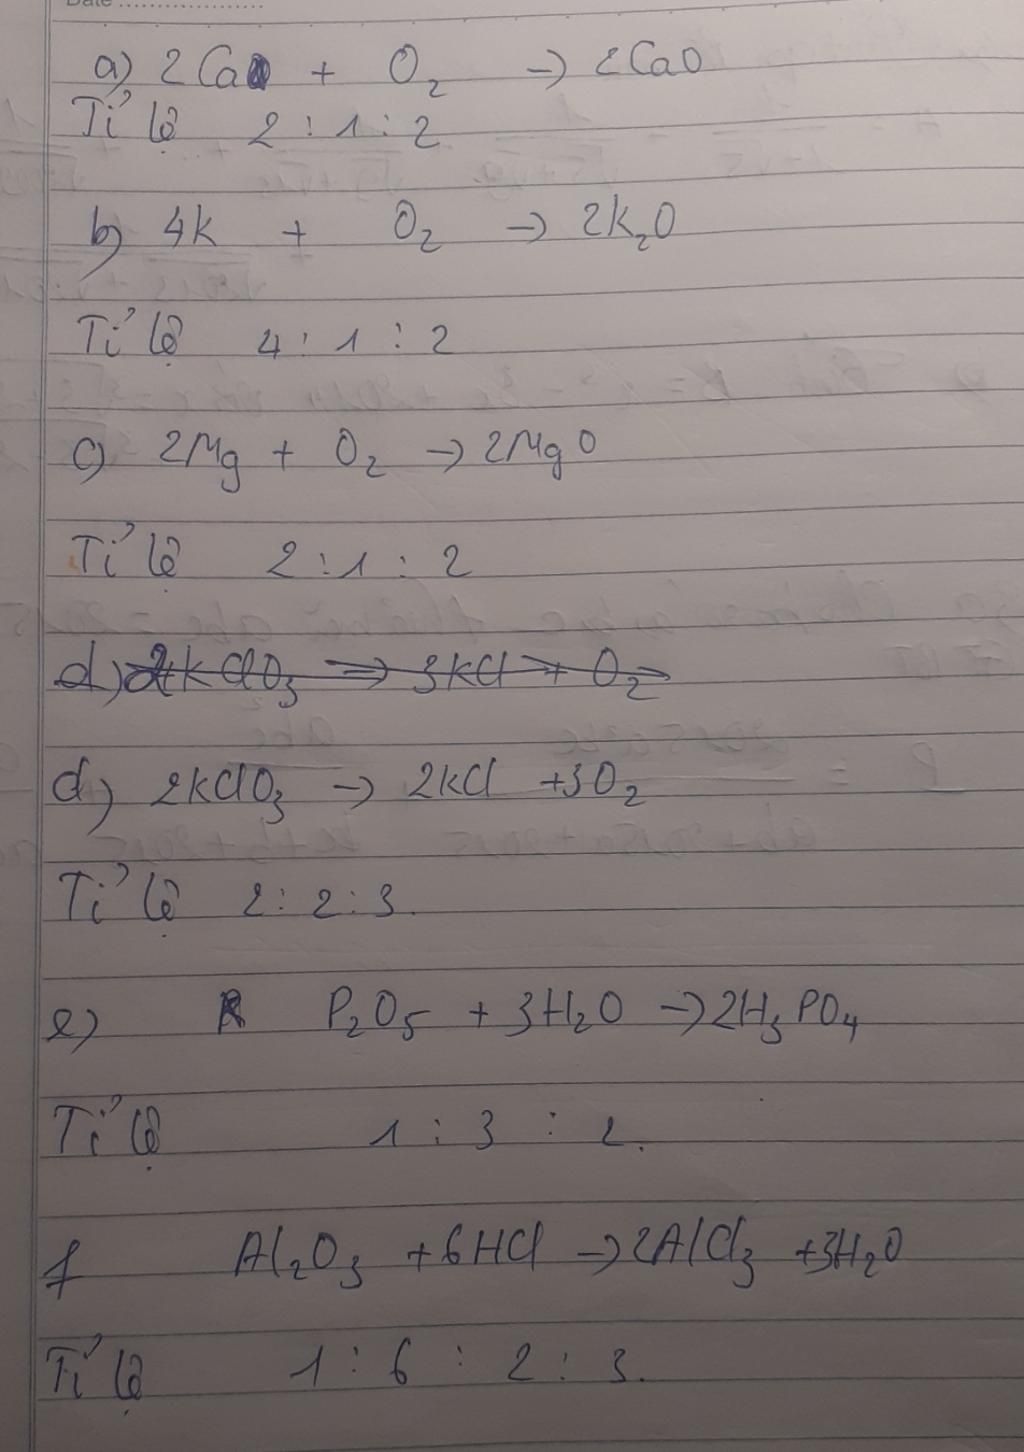 Date
a) 2Ca + O₂ → 2CaO
Tỉ lệ 2 : 1 : 2
b) 4K + O₂ → 2K₂O
Tỉ lệ 4 : 1 : 2
c) 2Mg + O₂ → 2MgO
Tỉ lệ 2 : 1 : 2
d) 2KClO₃ → 3KCl + O₂
d) 2KClO₃ → 2KCl +3O₂
Tỉ lệ 2 : 2 : 3.
e) P₂O₅ + 3H₂O → 2H₃PO₄
Tỉ lệ 1 : 3 : 2.
f Al₂O₃ + 6HCl → 2AlCl₃ +3H₂O
Tỉ lệ 1 : 6 : 2 : 3.